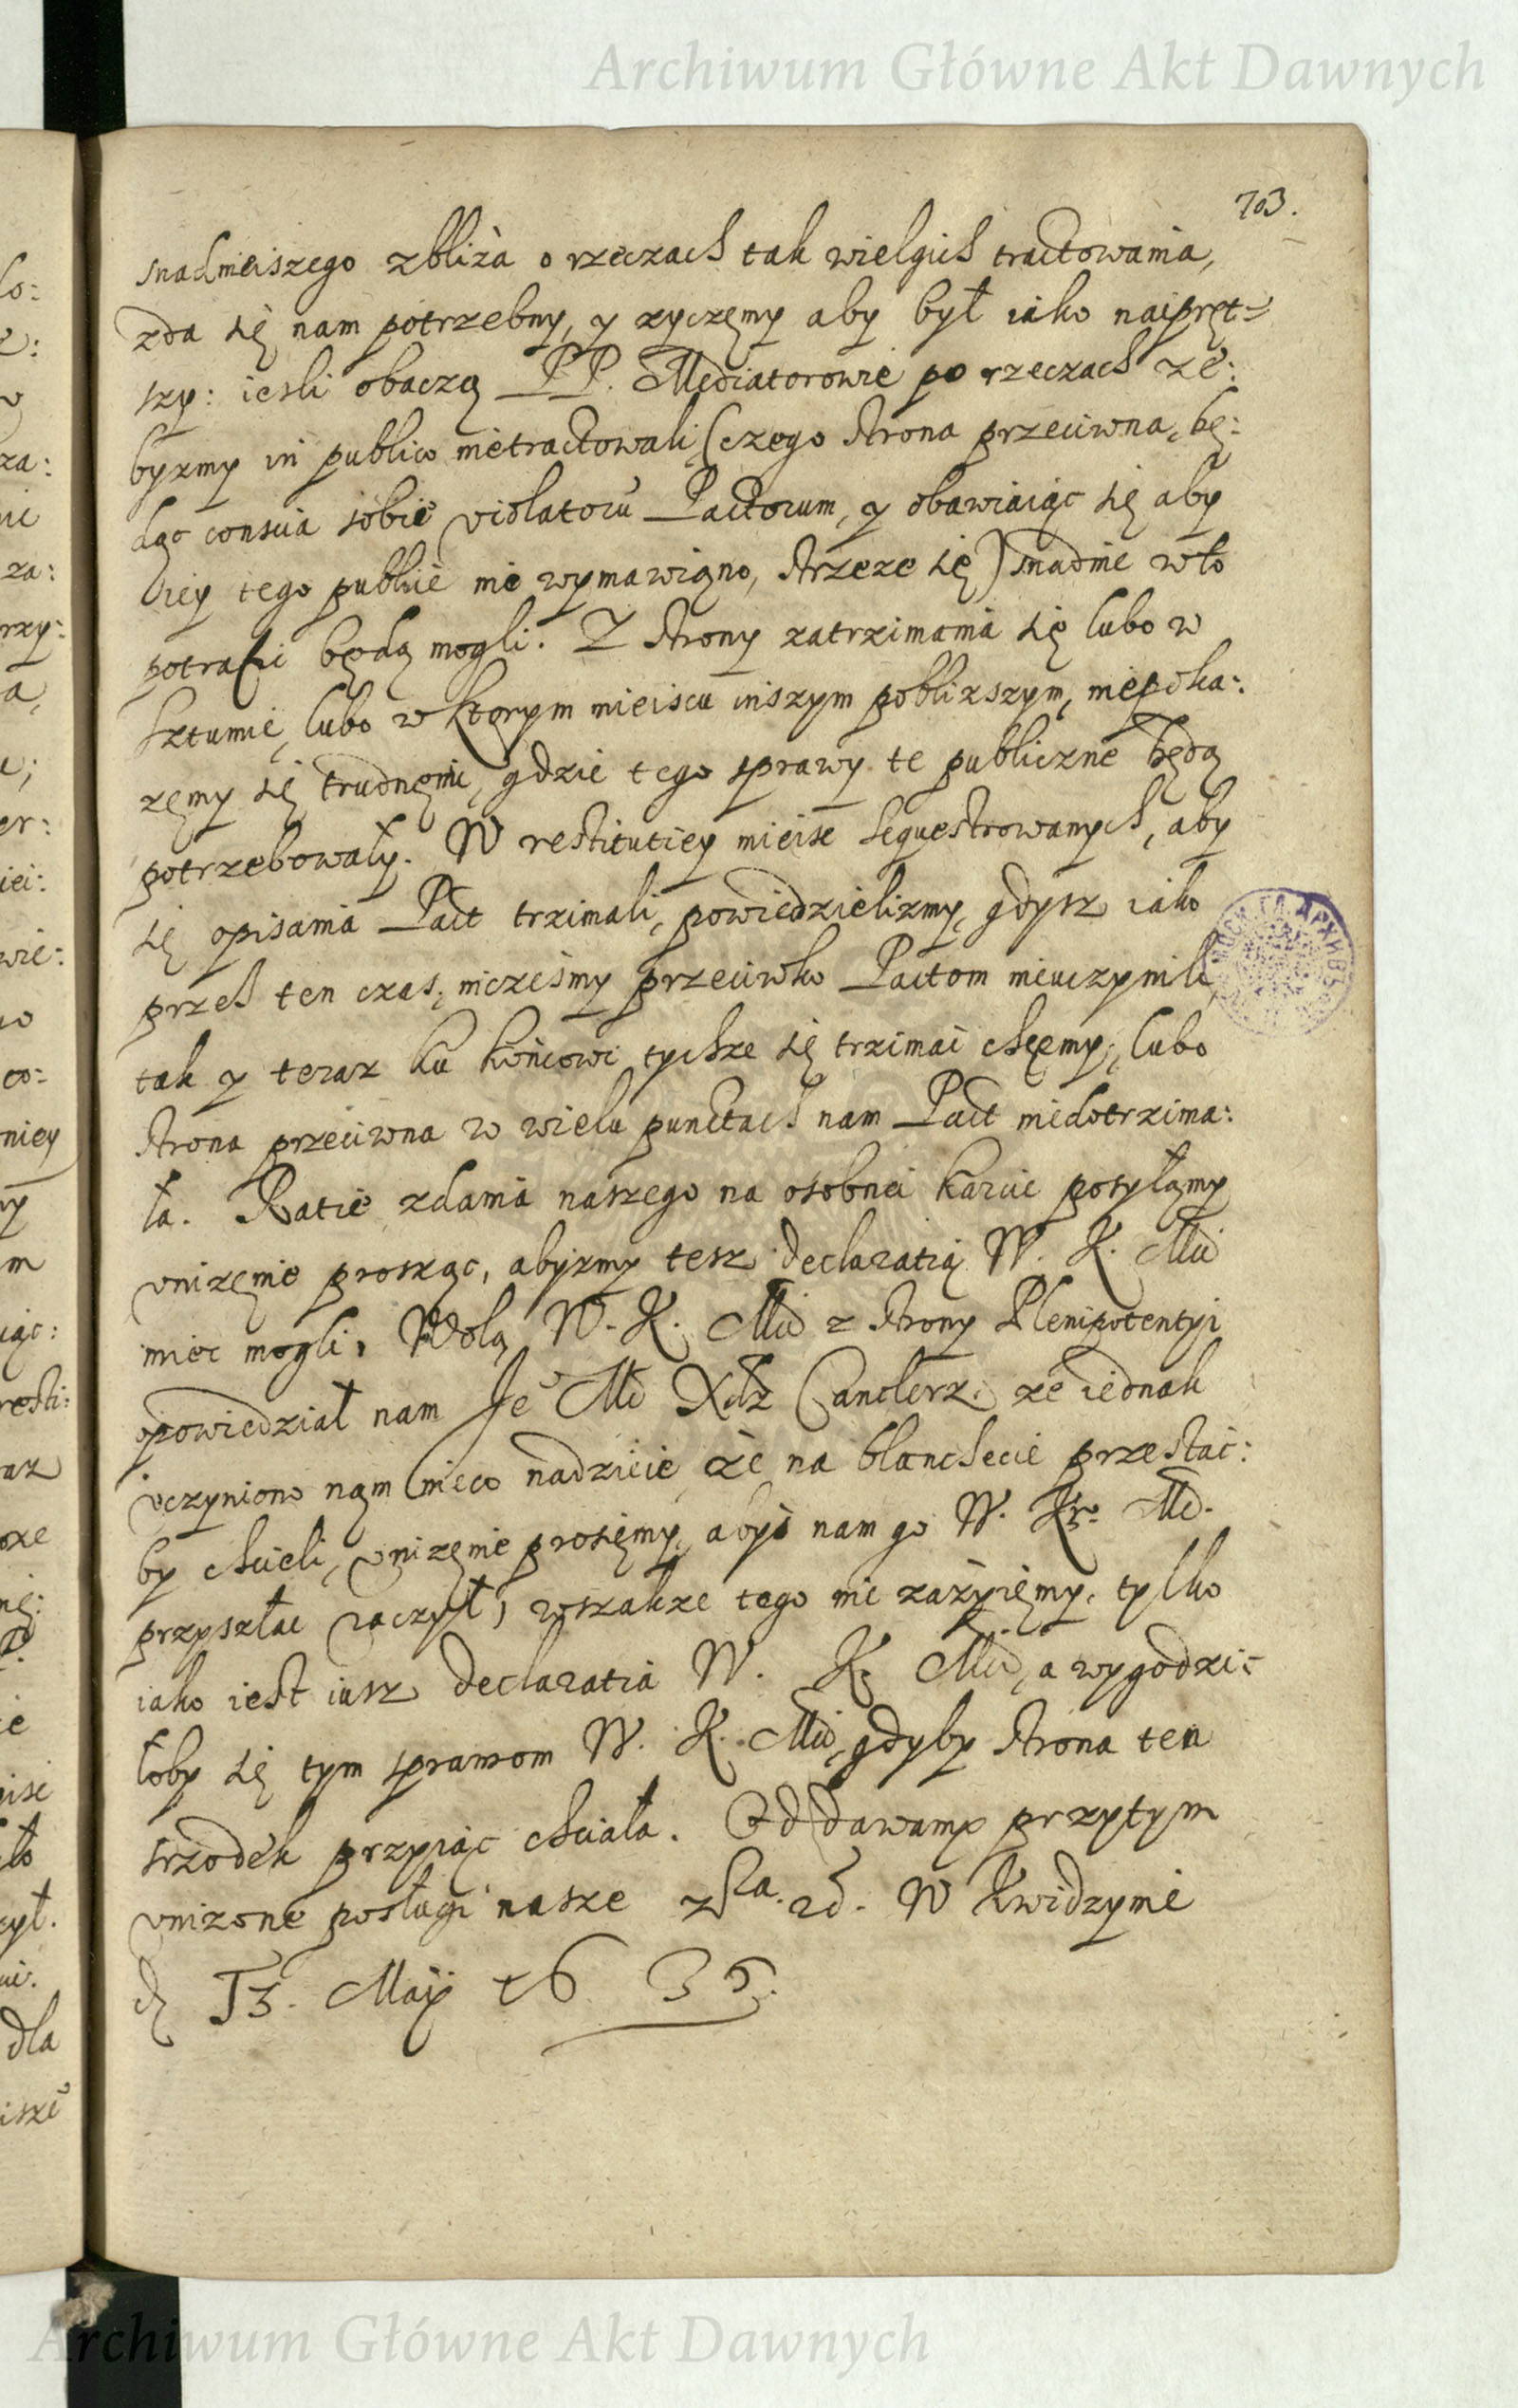 Archiwum Główne Akt Dawnych
703.
snadnieiszego zbliża o rzeczach tak wielgich tractowania,
zda się nam potrzebny, y zyczęmy aby był iako naipręt=
szy: iesli obaczą PP. Mediatorowie po rzeczach ze:
byzmy in publico nietractowali, (czego strona przeciwna, bę:
dąc conscia sobie violatorũ Pactorum, y obawiaiąc się aby
iey tego publicè nie wymawiąno, strzeze się) snadnie w to
potrafić będą mogli. Z strony zatrzimania się lubo w
Sztumie, lubo w ktorym mieiscu inszym poblizszym, niepoka:
zęmy się trudnęmi, gdzie tego sprawy te publiczne będą
potrzebowały. W restitutiey mieisc sequestrowanych, aby
się opisania Pact trzimali, powiedzielizmy, gdysz iako
przes ten czas, niczeşmy przeciwko Pactom nieuczynili,
tak y teraz ku końcowi tychze się trzimać chcęmy, lubo
strona przeciwna w wielu punctach nam Pact niedotrzima:
ła. Ratie zdania naszego na osobnei karcie posyłamy
vnizęnie prosząc, abyzmy tesz declaratią W. K. Mći
mieć mogli, Wolą W. K. Mći z strony Plenipotentyi
opowiedział nam Je° Mć Xdz Canclerz: ze iednak
vczyniono nąm nieco nadzieie, że na blanchecie przestać:
by chcieli, vnizęnie prosięmy, abyś nam go W. Kr. Mć.
przysztac raczył, wszakze tego nie zażyięmy, tylko
iako iest iusz declaratia W. K. Mći, a wygodzi=
łoby się tym sprawom W. K. Mći, gdyby strona ten
srzodek przyiąć chciała. Oddawamy przytym
vnizone posługi nasze W Kwidzynie
d 13. Maij 1635.
Archiwum Główne Akt Dawnych